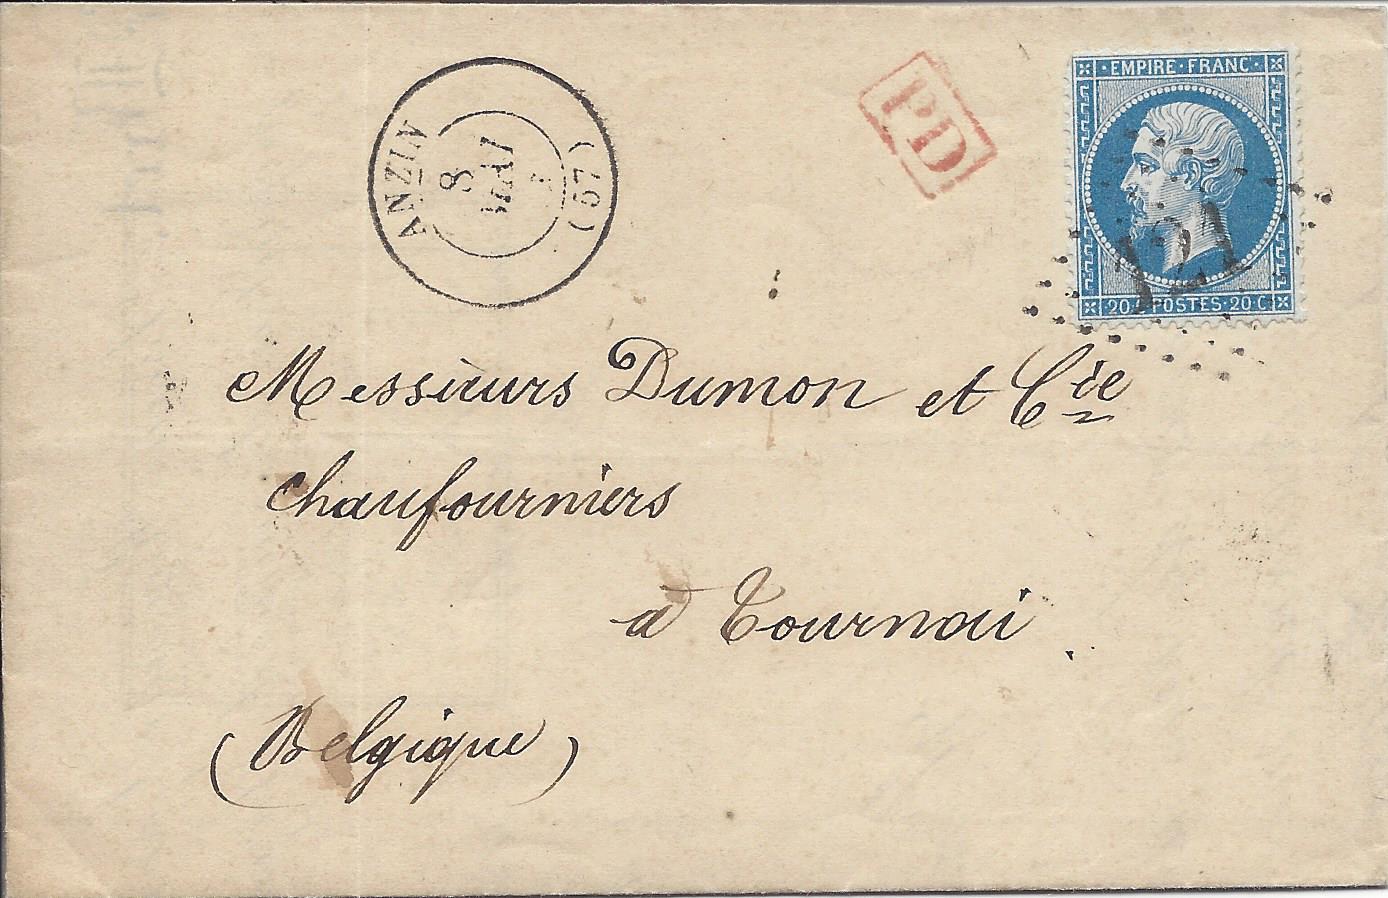 ANZIN (57)
8
MAI
PD
EMPIRE · FRANC ·
121
20 C POSTES · 20 C
Messieurs Dumon et Cie
Chaufourniers
à Tournai
(Belgique)